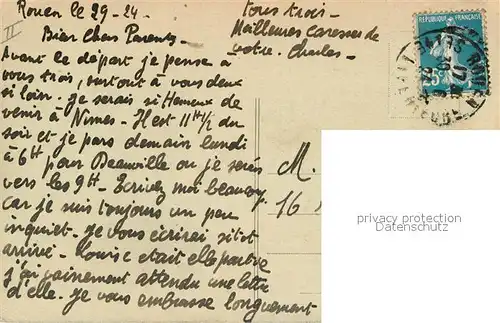 Rouen le 29-24.
Bien Chers Parents
Avant le départ je pense a
vous trois, surtout à vous deux
si loin. Je serais si Heureux de
venir à Nimes. Il est 11H1/2 du
soir et je pars demain lundi
à 6H pour Deauville ou je serais
vers les 9H. Ecrivez moi beaucoup
car je suis toujours un peu
inquiet. Je vous écrirai sitot
arrivé. Louise était elle partie
j'ai vainement attendu une lettre
d'elle. Je vous embrasse longuement
tous trois.
Meilleures caresses de
votre. Charles.
REPUBLIQUE FRANÇAISE
25
M.
16
privacy protection
Datenschutz